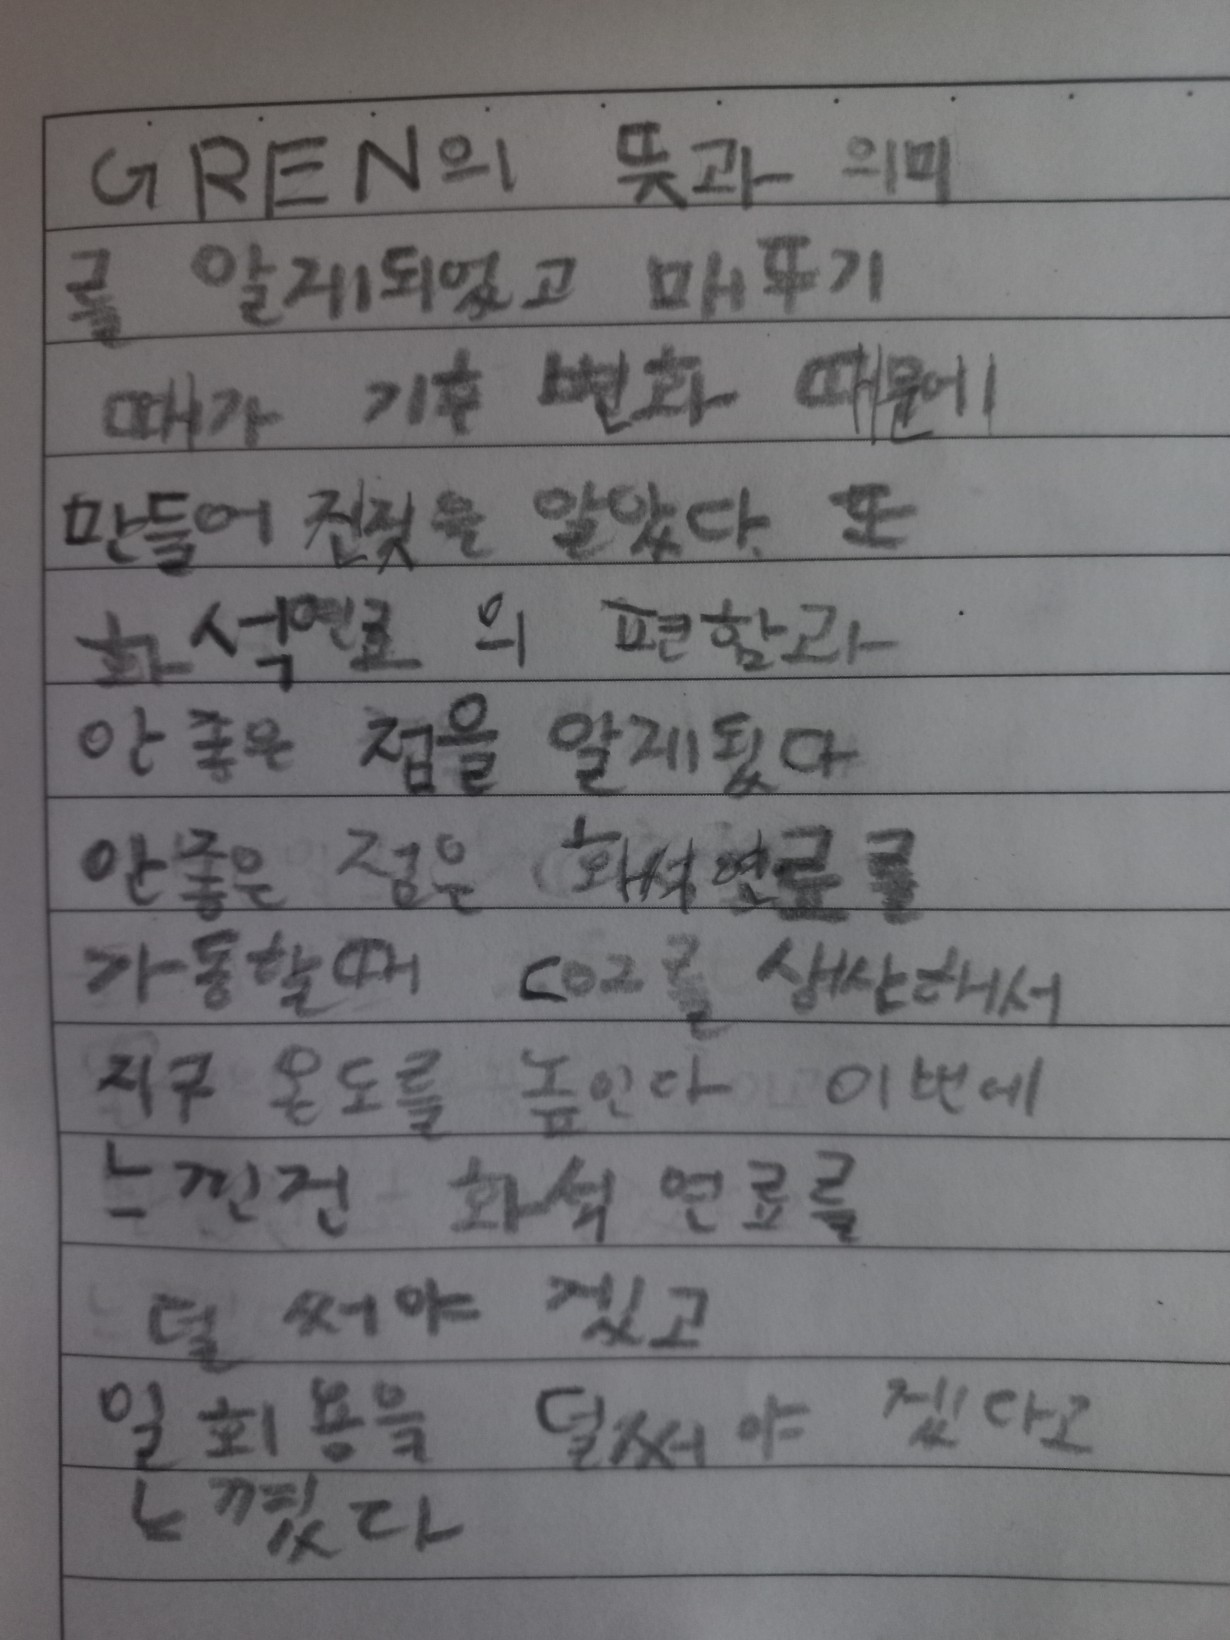 GREN의 뜻과 의미
를 알게되었고 매뚜기
때가 기후 변화 때문에
만들어 진젖을 알았다. 또
화석연료 의 편함과
안 좋은 점을 알게됬다
안좋은 점은 화석연료를
가동할때 CO2를 생산해서
지구 온도를 높인다 이번에
느낀건 화석 연료를
덜 써야 겠고
일회용을 덜써야 겠다고
느꼈다